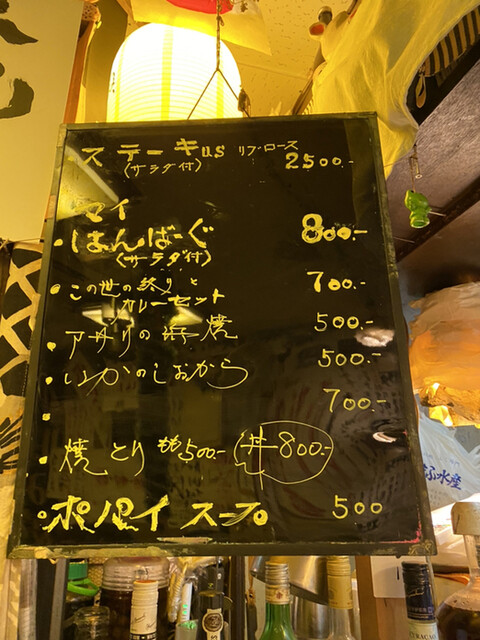 ・ステーキus リブロース 2500.-
(サラダ付)
マイ
・はんばーぐ 800.-
(サラダ付)
・この世の終りと 700.-
カレーセット
・アサリの浜焼 500.-
・いかのしおから 500.-
・ 700.-
・焼とり もも500.- (丼800.-)
・ポパイスープ 500
ふ水産